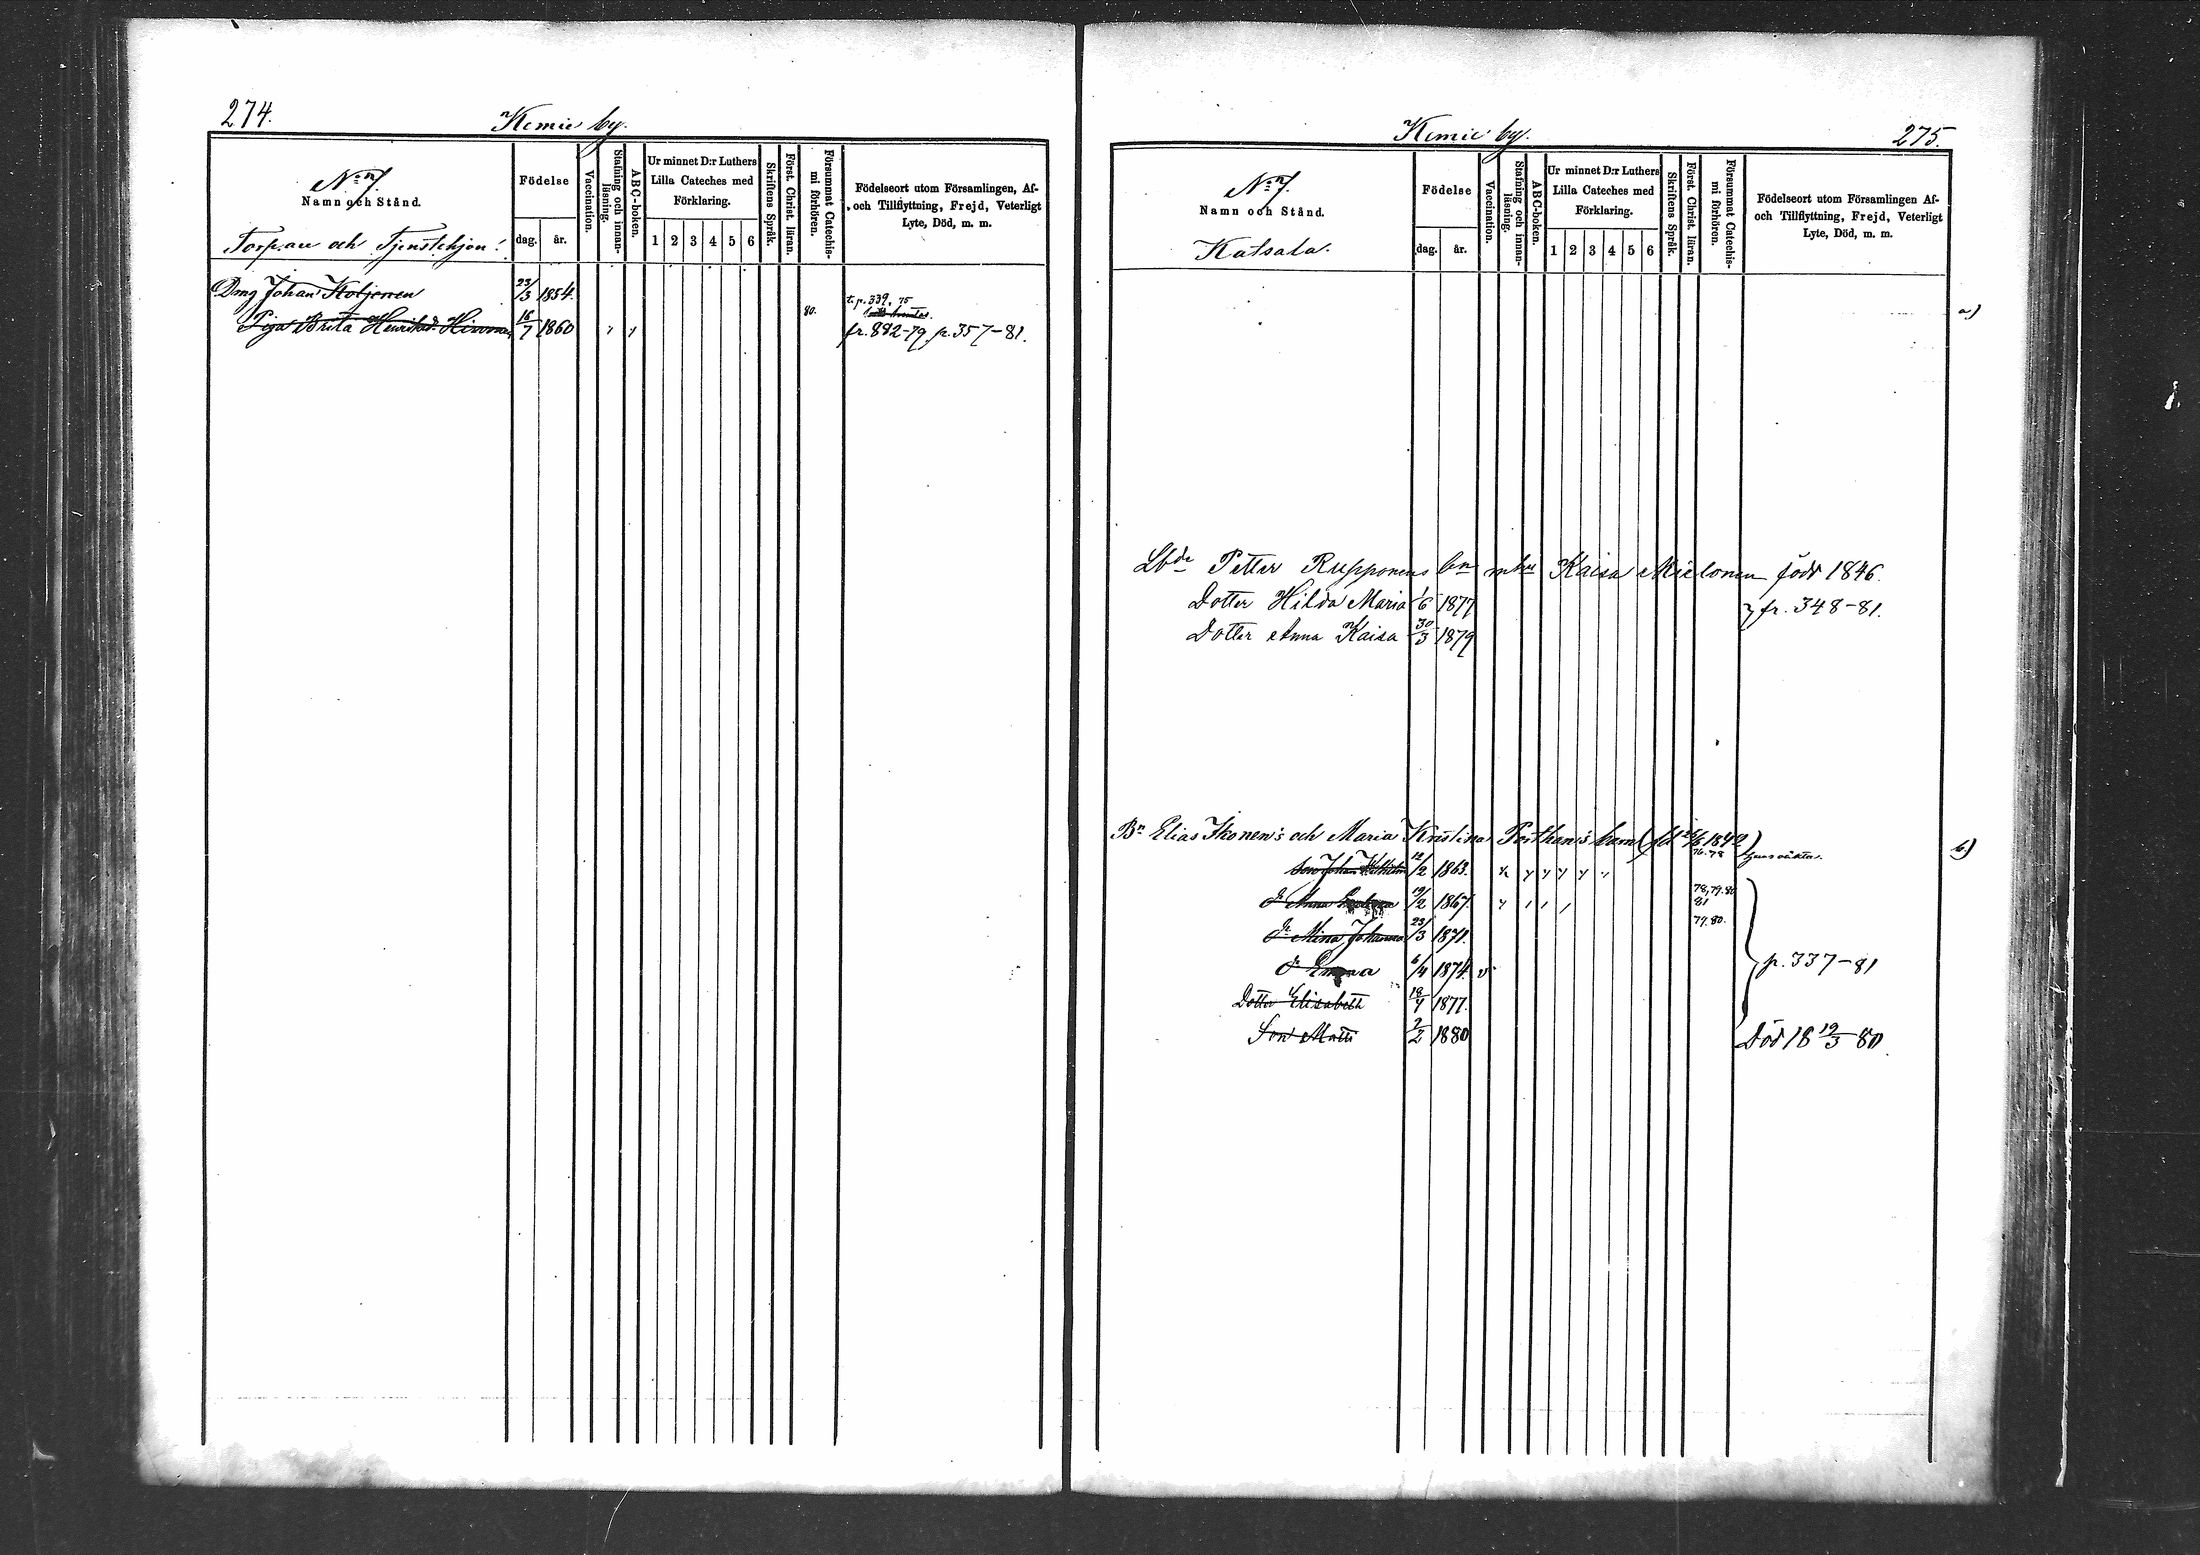 274.
Kemie by.
No 7.
Namn och Stånd.
Torpare och Tjenstehjon.
Födelse
dag. år.
Vaccination.
Stafning och innanläsning.
ABC-boken.
Ur minnet D:r Luthers
Lilla Cateches med
Förklaring.
1 2 3 4 5 6
Skriftens Språk.
Först. Christ. läran.
Försummat Catechismi förhören.
Födelseort utom Församlingen, Af-
och Tillflyttning, Frejd, Veterligt
Lyte, Död, m. m.
Dmg Johan Koljonen 23/3 1854 t. p. 339, 75
Piga Brita Henriksd. Hirvonen 16/7 1860 80. fr. 882-79. p. 357-81.
Kemie by.
275.
No 7.
Namn och Stånd.
Katsala.
Födelse
dag. år.
Vaccination.
Stafning och innanläsning.
ABC-boken.
Ur minnet D:r Luthers
Lilla Cateches med
Förklaring.
1 2 3 4 5 6
Skriftens Språk.
Först. Christ. läran.
Försummat Catechismi förhören.
Födelseort utom Församlingen Af-
och Tillflyttning, Frejd, Veterligt
Lyte, Död, m. m.
a)
Petter Rupponens Kaisa Mielonen född 1846.
Dotter Hilda Maria 1/6 1877 fr. 348-81.
Dotter Anna Kaisa 30/3 1879
Bn Elias Ikonen's och Maria Kristina Porthan's barn
b)
son Johan Wilhelm 12/2 1863. 76. 78
dr Anna 19/2 1867. 78, 79. 80
81
dr Mina Johanna 23/3 1871. 79. 80.
dr Emma 6/4 1874. v p. 337-81
Dotter Elisabeth 18/4 1877.
Son Matti 2/2 1880 Död 18 19/3 80